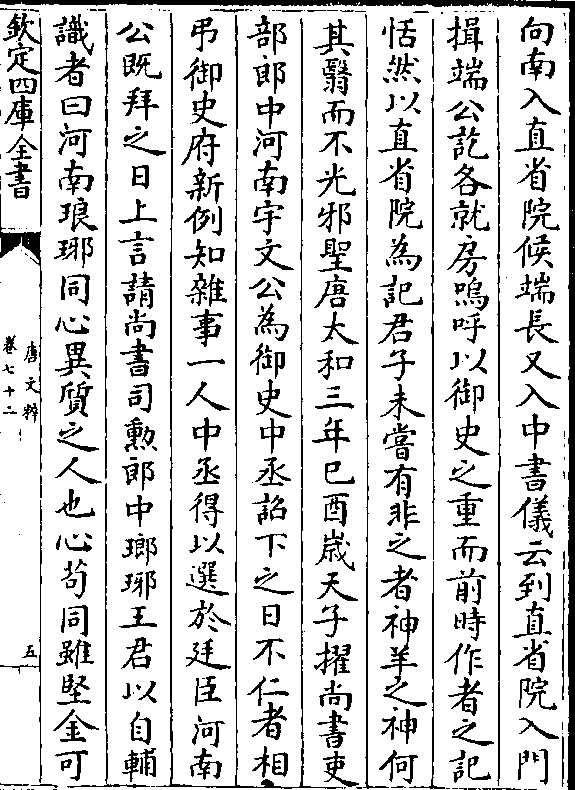 向南入直省院候端長又入中書儀云到直省院入門
揖端公訖各就房嗚呼以御史之重而前時作者之記
恬然以直省院為記君子未嘗有非之者神羊之神何
其翳而不光邪聖唐太和三年巳酉歲天子擢尚書吏
部郎中河南宇文公為御史中丞詔下之日不仁者相
弔御史府新例知雜事一人中丞得以選於廷臣河南
公既拜之日上言請尚書司勲郎中瑯琊王君以自輔
識者曰河南琅琊同心異質之人也心苟同雖堅金可
欽定四庫全書
唐文粹
卷七十二
五